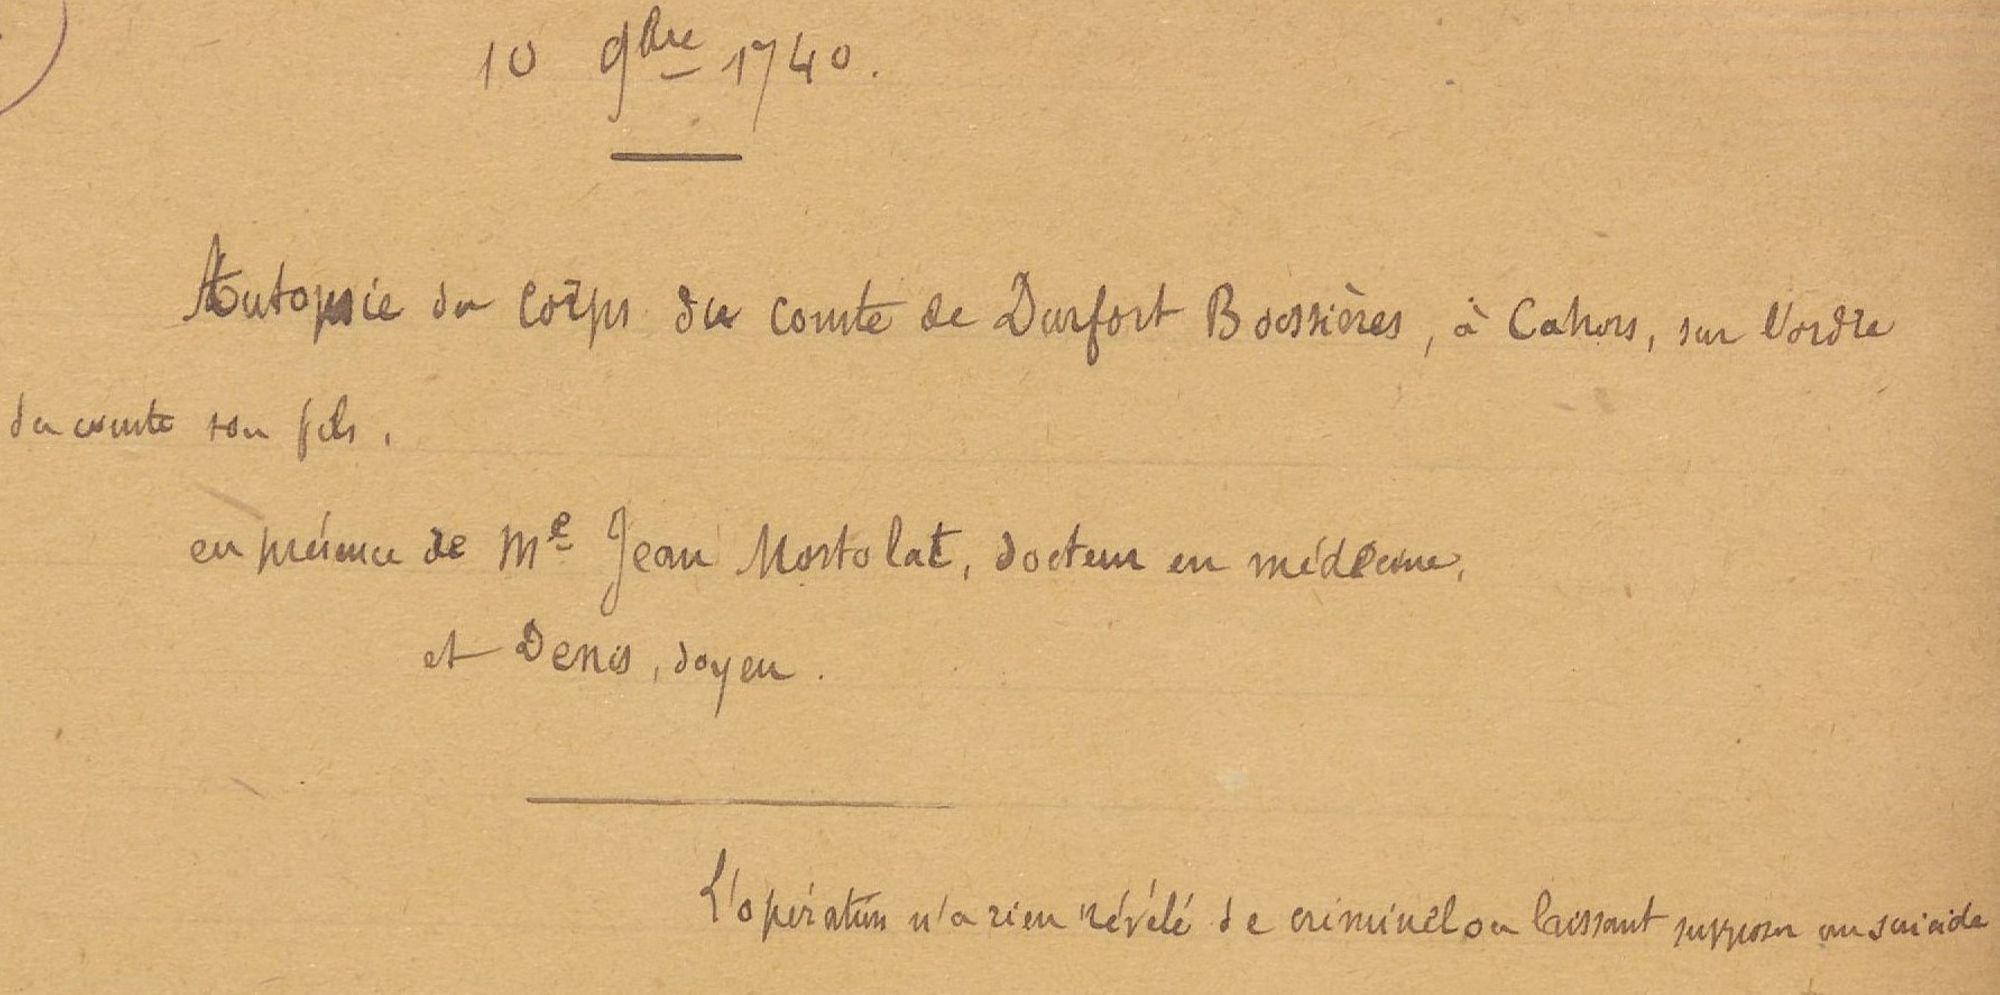 10 9bre 1740.
Autopsie du corps du comte de Durfort Boissières, à Cahors, sur l'ordre
du comte son fils.
en présence de Me Jean Mostolat, docteur en médecine,
et Denis, doyen.
L'opération n'a rien révélé de criminel ou laissant supposer un suicide